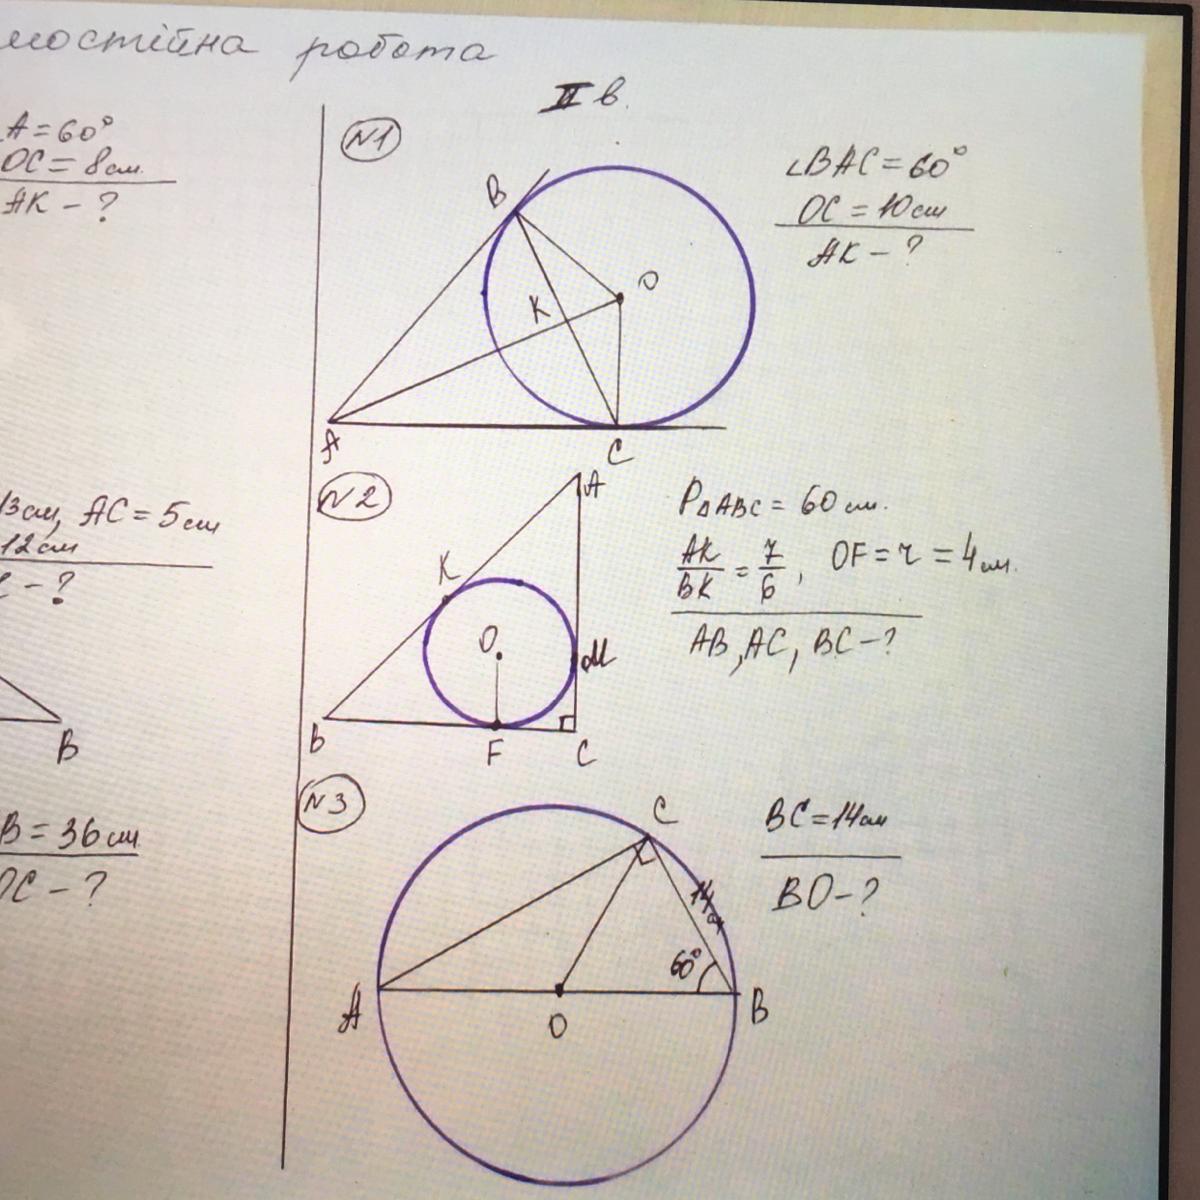 мостійна робота
∠A = 60°
OC = 8 см
AK - ?
13 см, AC = 5 см
12 см
- ?
B
B = 36 см
OC - ?
II в.
N1
B
O
K
A
C
∠BAC = 60°
OC = 10 см
AK - ?
N2
A
K
O
M
B
F
C
P△ABC = 60 см.
AK/BK = 7/6, OF = r = 4 см.
AB, AC, BC - ?
N3
C
14 см
60°
A
O
B
BC = 14 см
BO - ?